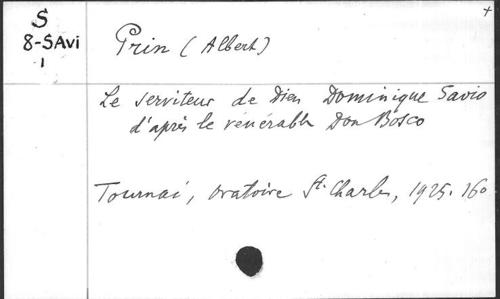 S
8-SAvi
1
+
Prin (Albert)
Le serviteur de Dieu Dominique Savio
d'après le vénérable Don Bosco
Tournai, Oratoire St. Charles, 1925. 16o